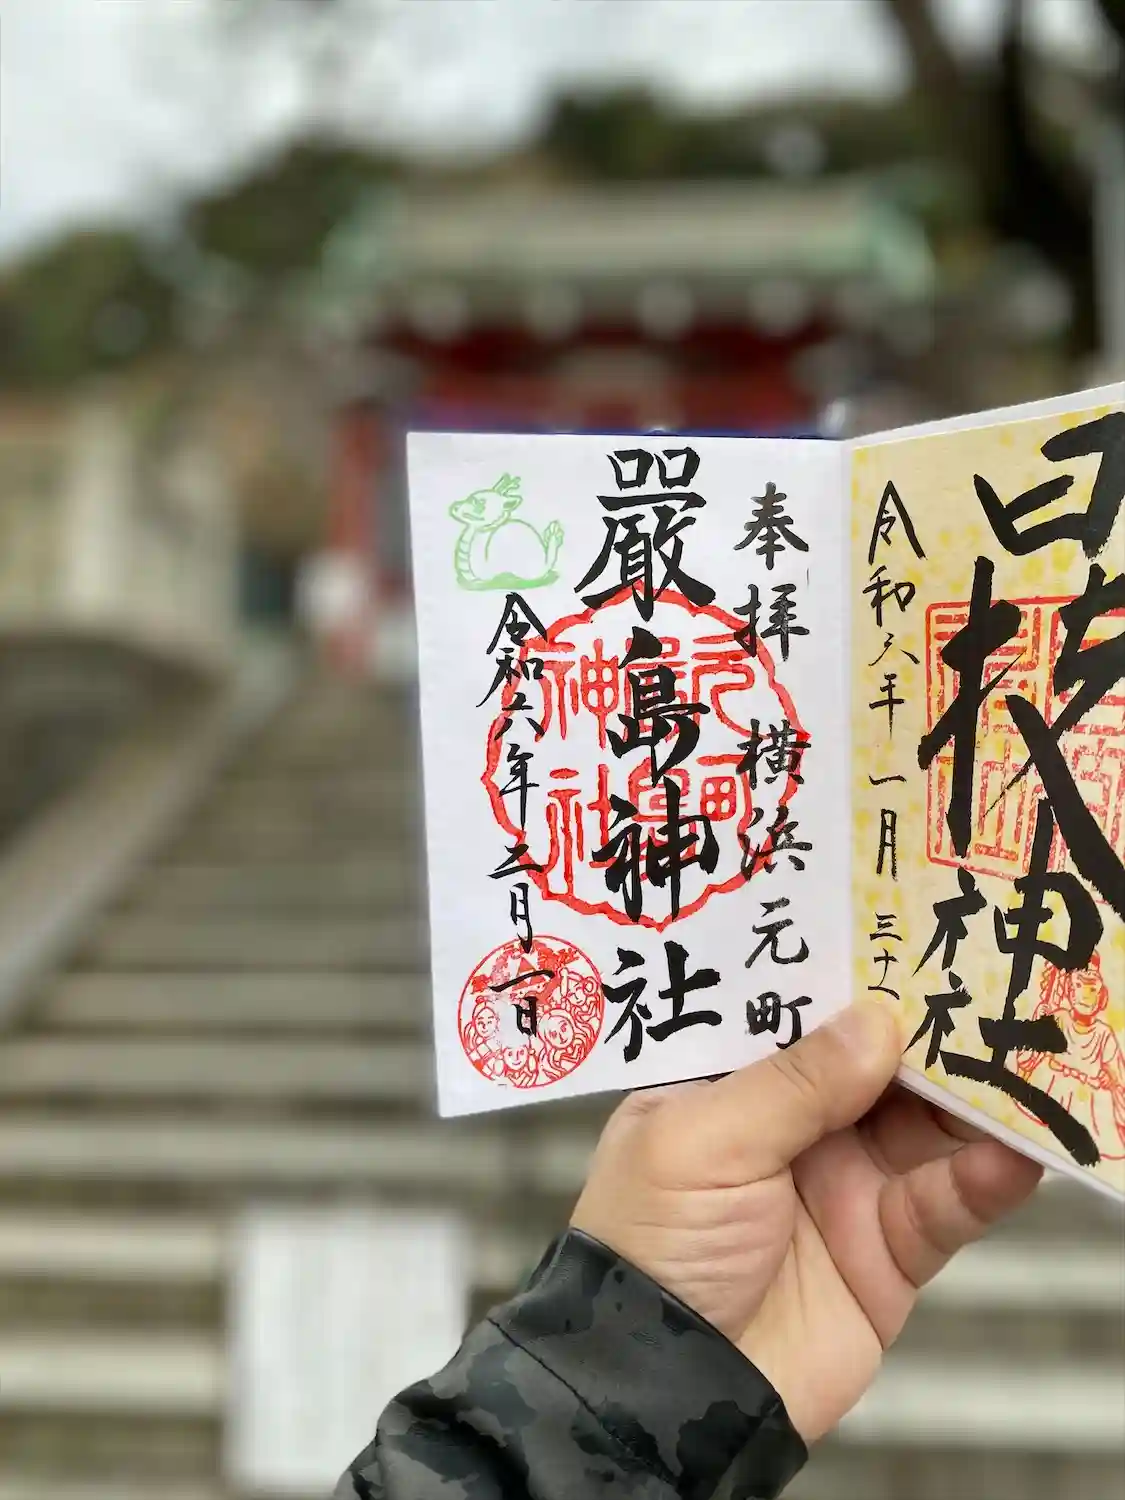 奉拝 横浜元町
嚴島神社
令和六年二月一日
元町
嚴島
神社
日枝神社
令和六年一月三十